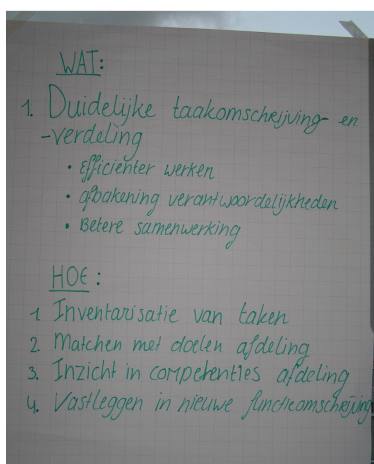 WAT:
1. Duidelijke taakomschrijving- en
-verdeling
• Efficiënter werken
• afbakening verantwoordelijkheden
• Betere samenwerking
HOE:
1 Inventarisatie van taken
2. Matchen met doelen afdeling
3. Inzicht in competenties afdeling
4. Vastleggen in nieuwe functieomschrijving